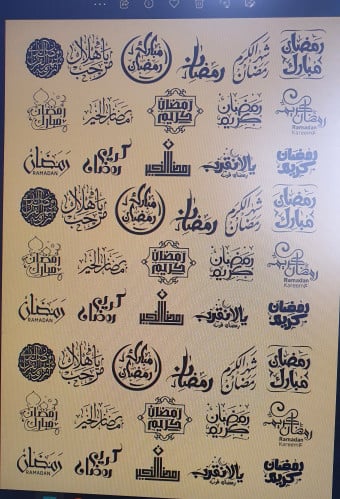 رمضان مبارك
شهر رمضان الكريم
رمضان
رمضان مبارك
يا هلال مرحب
رمضان كريم
Ramadan Kareem
رمضان كريم
رمضان كريم
رمضان الخير
رمضان مبارك
رمضان كريم
يالا نقرب
رمضان قرب
رمضان كريم
رمضان
RAMADAN
رمضان مبارك
شهر رمضان الكريم
رمضان
رمضان مبارك
يا هلال مرحب
رمضان كريم
Ramadan Kareem
رمضان كريم
رمضان كريم
رمضان الخير
رمضان مبارك
رمضان كريم
يالا نقرب
رمضان قرب
رمضان كريم
رمضان
RAMADAN
رمضان مبارك
شهر رمضان الكريم
رمضان
رمضان مبارك
يا هلال مرحب
رمضان كريم
Ramadan Kareem
رمضان كريم
رمضان كريم
رمضان الخير
رمضان مبارك
رمضان كريم
يالا نقرب
رمضان قرب
رمضان كريم
رمضان
RAMADAN